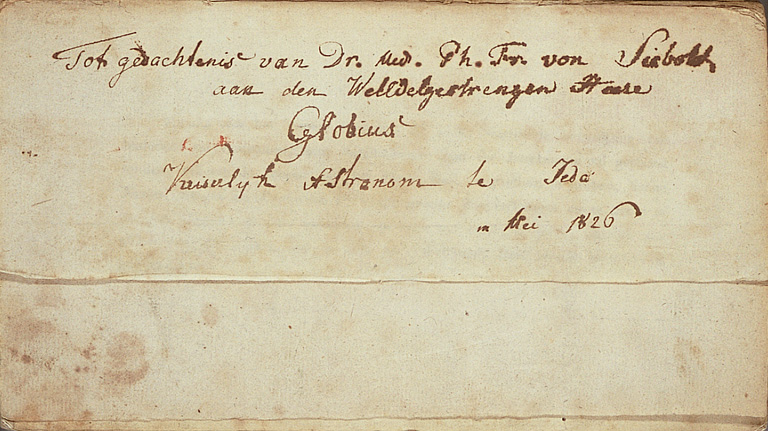 Tot gedachtenis van Dr. Med. Ph. Fr. von Siebold
aan den Welledelgestrengen Heere
Globius
Kaiserlyk Astronom te Jedo
in Mei 1826